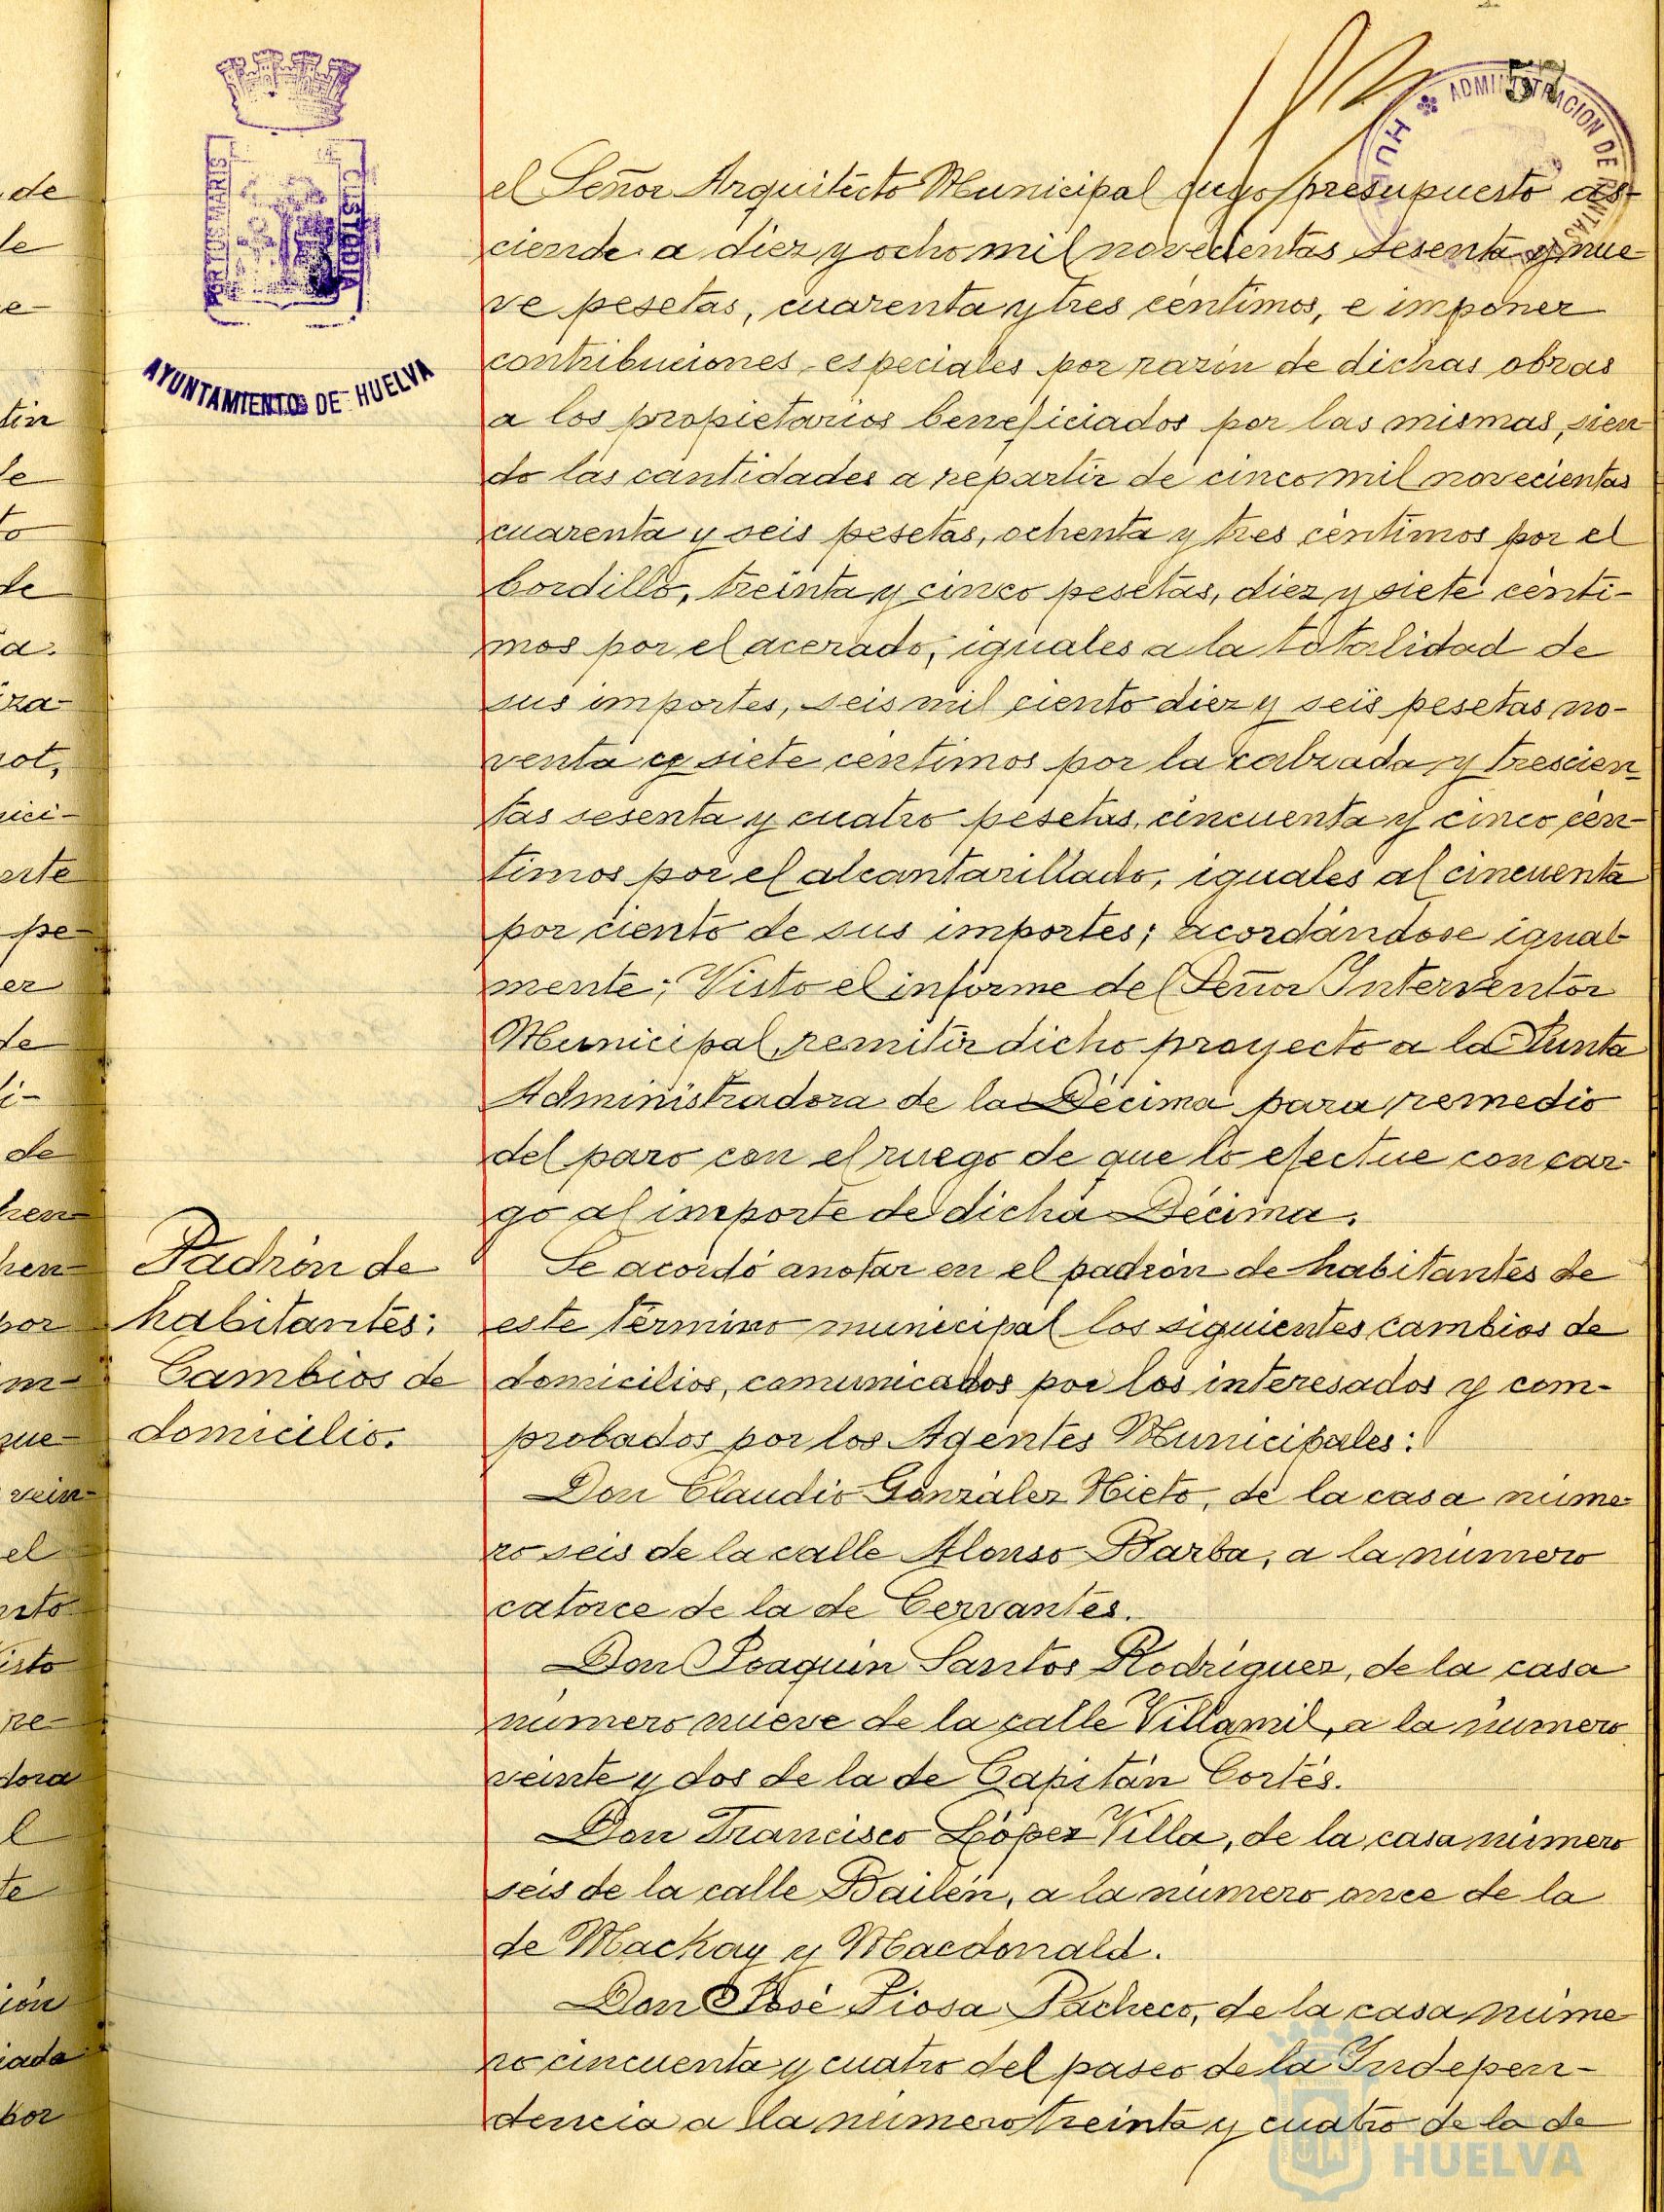 57
ADMINISTRACION DE RENTAS
HU
PORTUS MARIS
CUSTODIA
AYUNTAMIENTO DE HUELVA
el Señor Arquitecto Municipal cuyo presupuesto as-
ciende a diez y ocho mil novecientas sesenta y nue-
ve pesetas, cuarenta y tres céntimos, e imponer
contribuciones especiales por razón de dichas obras
a los propietarios beneficiados por las mismas, sien-
do las cantidades a repartir de cinco mil novecientas
cuarenta y seis pesetas, ochenta y tres céntimos por el
bordillo, treinta y cinco pesetas, diez y siete cénti-
mos por el acerado, iguales a la totalidad de
sus importes, seis mil ciento diez y seis pesetas no-
venta y siete céntimos por la calzada y trescien-
tas sesenta y cuatro pesetas, cincuenta y cinco cén-
timos por el alcantarillado, iguales al cincuenta
por ciento de sus importes; acordándose igual-
mente; Visto el informe del Señor Interventor
Municipal, remitir dicho proyecto a la Junta
Administradora de la Décima para remedio
del paro con el ruego de que lo efectue con car-
go al importe de dicha Décima.
Padrón de
habitantes:
Cambios de
domicilio.
Se acordó anotar en el padrón de habitantes de
este término municipal los siguientes cambios de
domicilios, comunicados por los interesados y com-
probados por los Agentes Municipales:
Don Claudio González Nieto, de la casa núme-
ro seis de la calle Alonso Barba, a la número
catorce de la de Cervantes.
Don Joaquín Santos Rodríguez, de la casa
número nueve de la calle Villamil, a la número
veinte y dos de la de Capitán Cortés.
Don Francisco López Villa, de la casa número
seis de la calle Bailén, a la número once de la
de Mackay y Macdonald.
Don José Piosa Pacheco, de la casa núme-
ro cincuenta y cuatro del paseo de la Indepen-
dencia a la número treinta y cuatro de la de
HUELVA